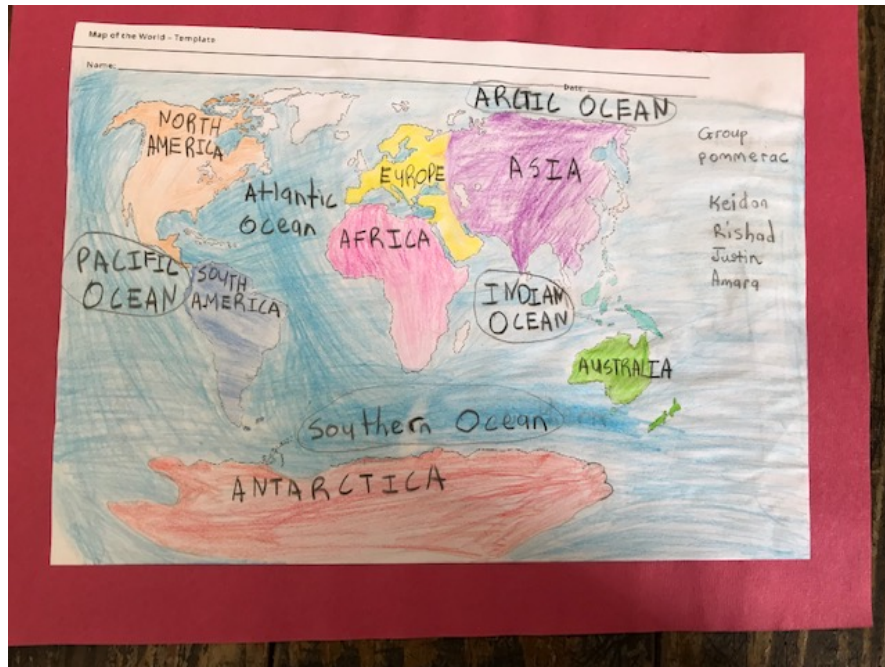 Map of the World - Template
Name:
Date:
NORTH
AMERICA
ARCTIC OCEAN
EUROPE
ASIA
Atlantic
Ocean
AFRICA
PACIFIC
OCEAN
SOUTH
AMERICA
INDIAN
OCEAN
AUSTRALIA
Southern Ocean
ANTARCTICA
Group
pommerac
Keidon
Rishad
Justin
Amara